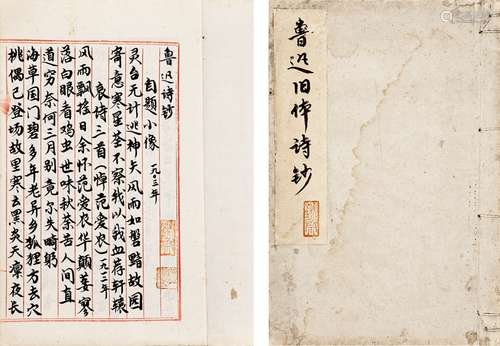 鲁迅旧体诗钞
鲁迅诗钞
自题小像 一九〇三年
灵台无计逃神矢风雨如磐黯故园
寄意寒星荃不察我以我血荐轩辕
哀诗三首（悼范爱农）一九一二年
风雨飘摇日余怀范爱农华颠萎寥
落白眼看鸡虫世味秋荼苦人间直
道穷奈何三月别竟尔失畸躬
海草国门碧多年老异乡狐狸方去穴
桃偶已登场故里寒云黑炎天凛夜长